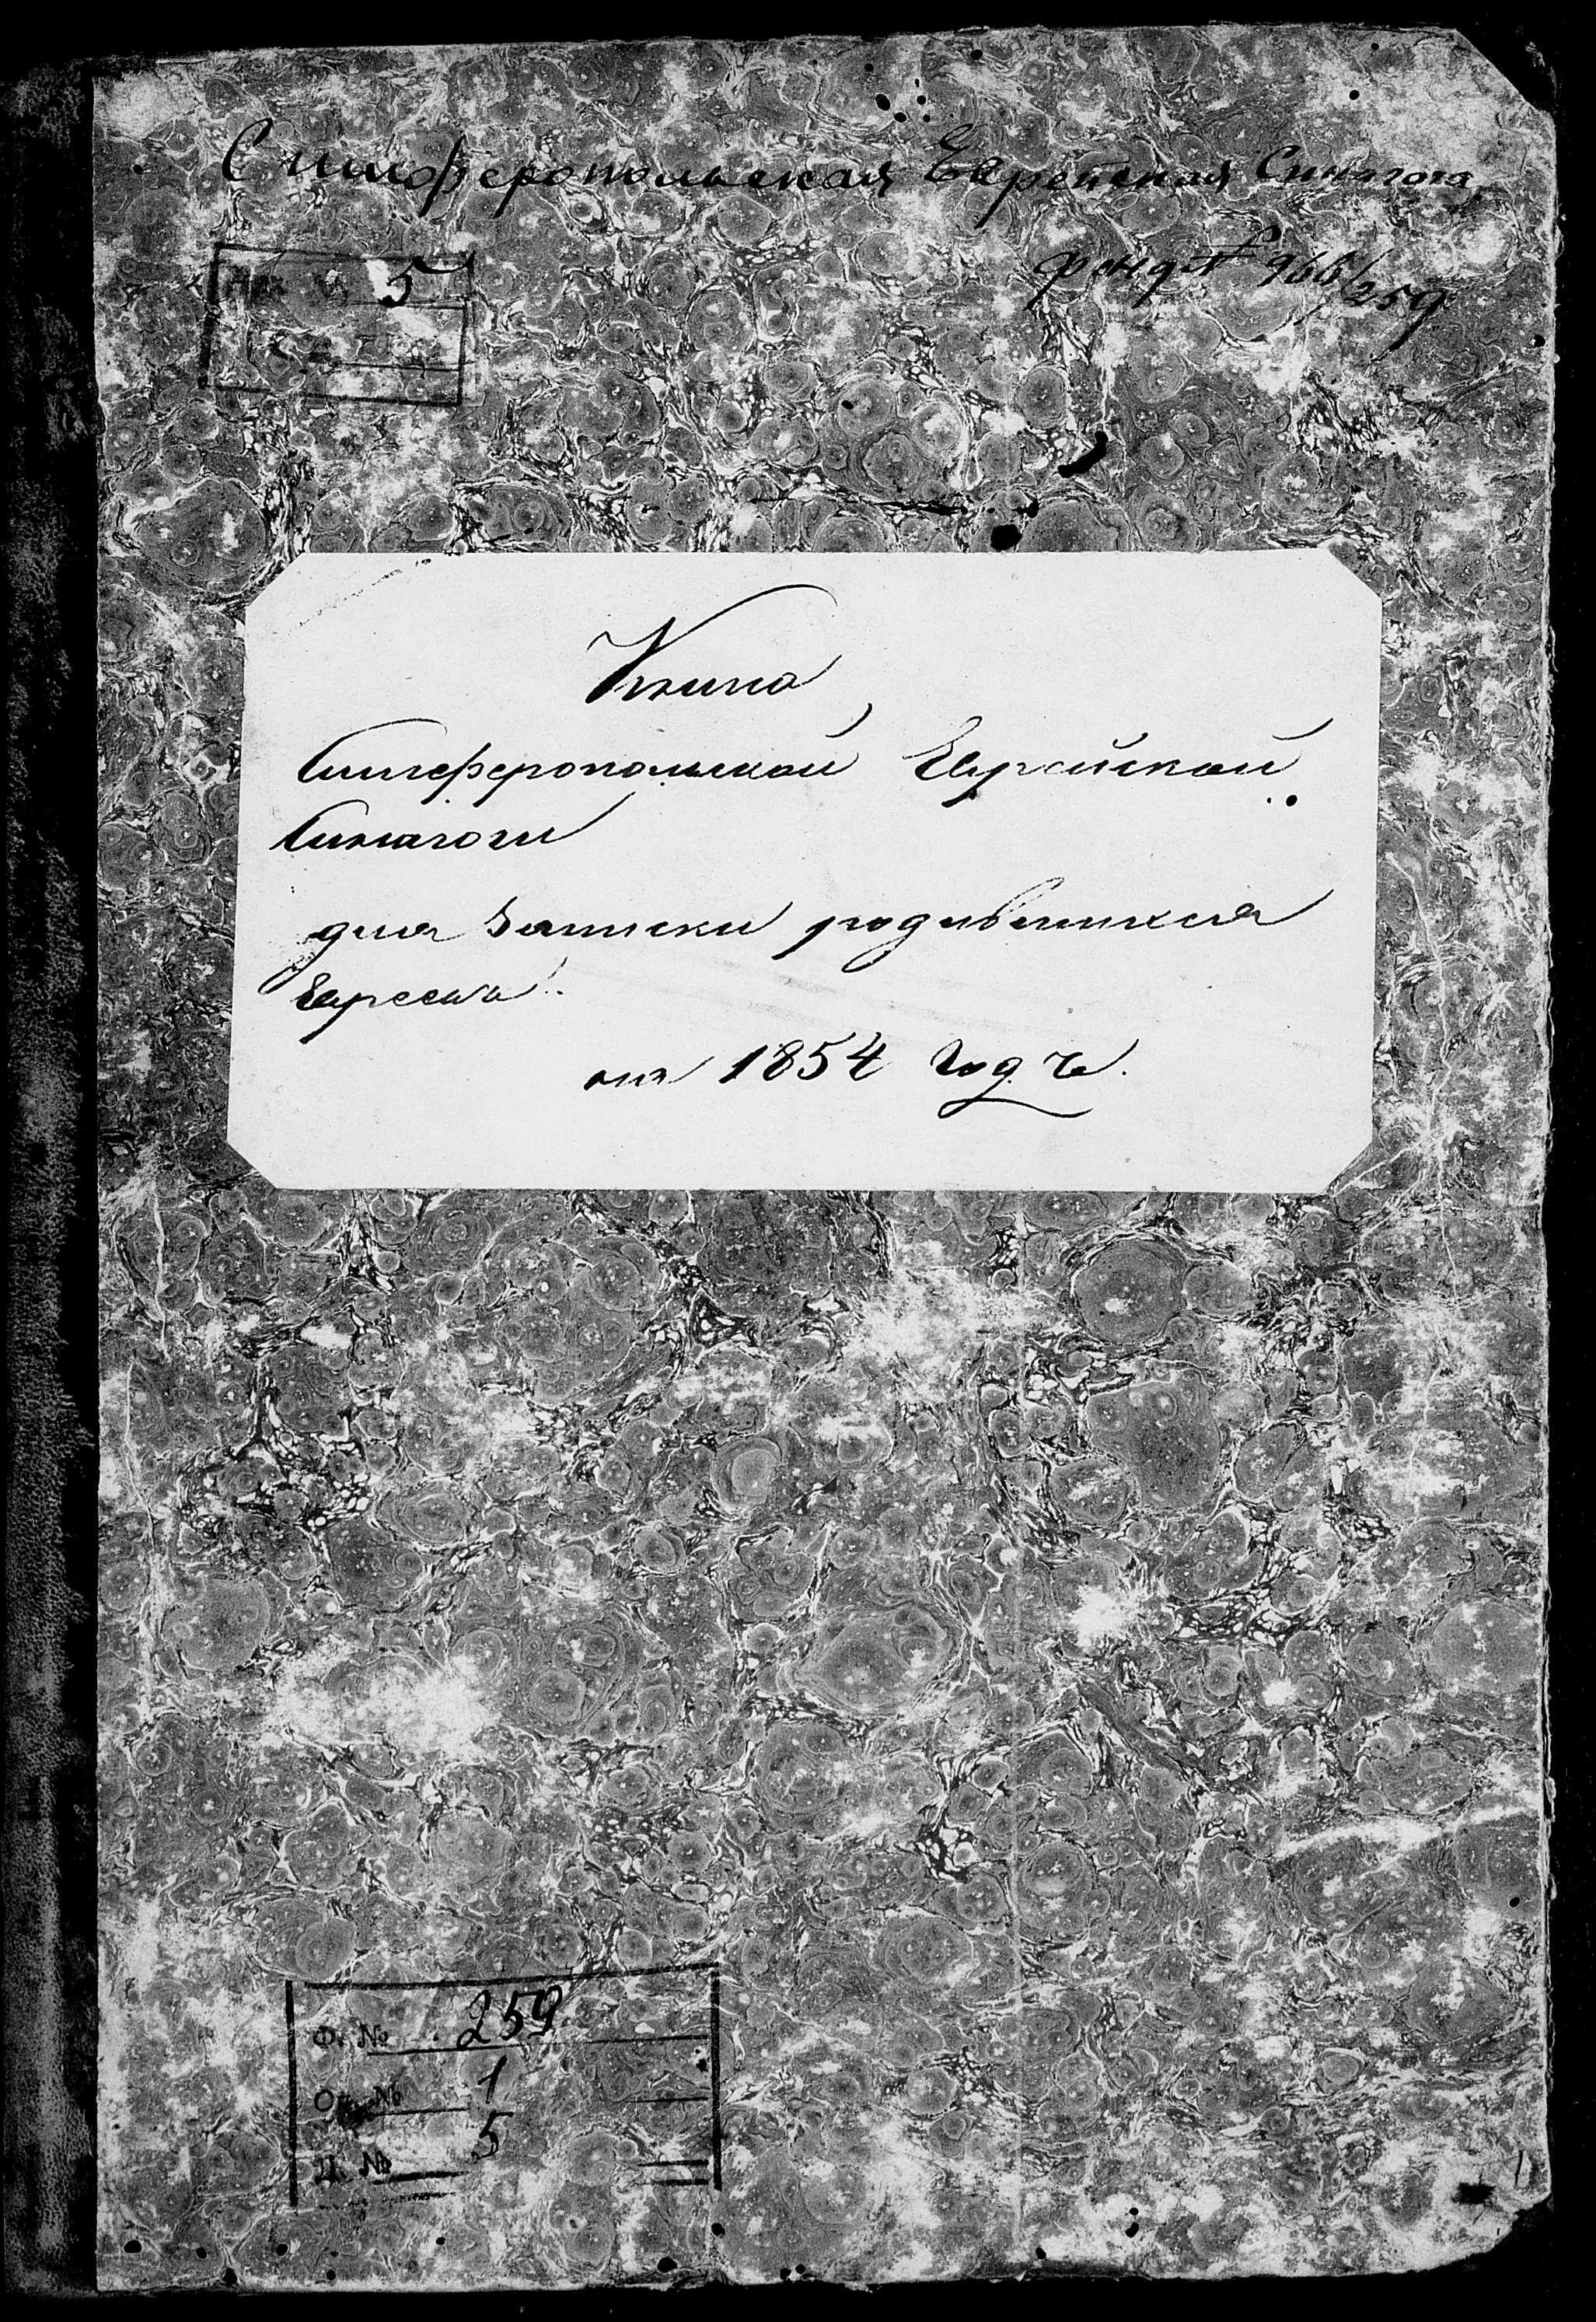 Симферопольская Еврейская Синагога
фонд № 966/259
5
Книга
Симферопольской Еврейской
Синагоги
для записки родившихся
Евреевъ.
на 1854 годъ.
Ф. № 259
Оп. № 1
Д. № 5